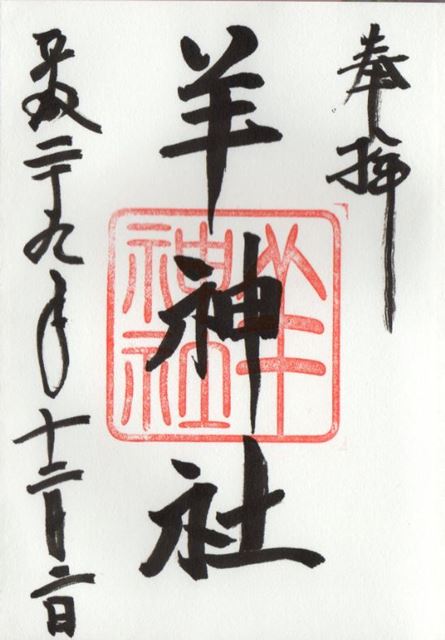 奉拝
羊神社
羊神社
平成二十九年十二月二日